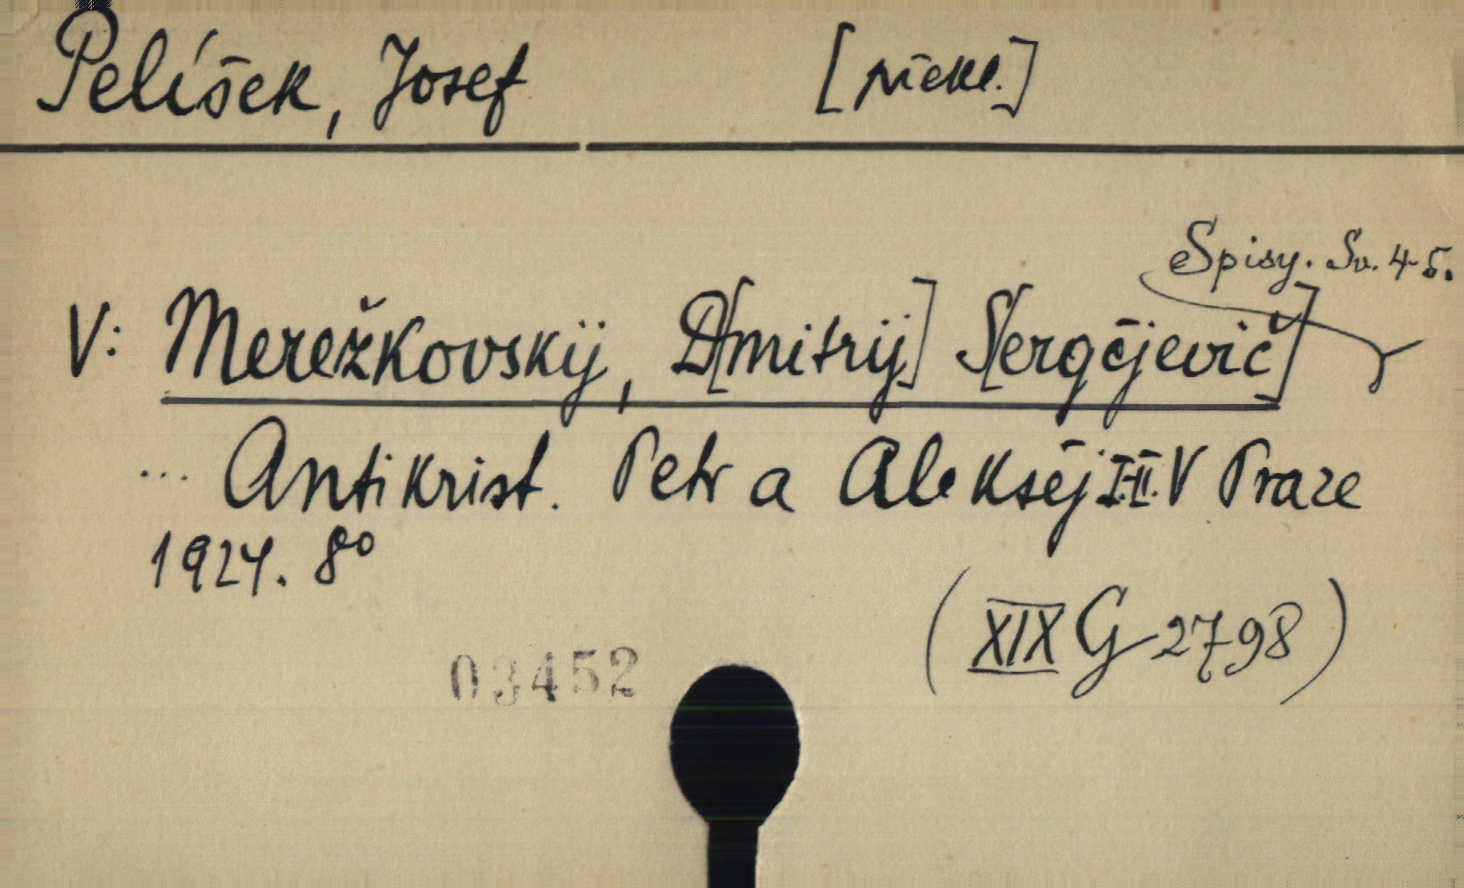 Pelíšek, Josef [překl.]
Spisy. Sv. 4-5.
V: Merežkovskij, D[mitrij] S[ergějevič]
... Antikrist. Petr a Aleksěj I-II. V Praze
1924. 8°
(XIX G 2798)
03452